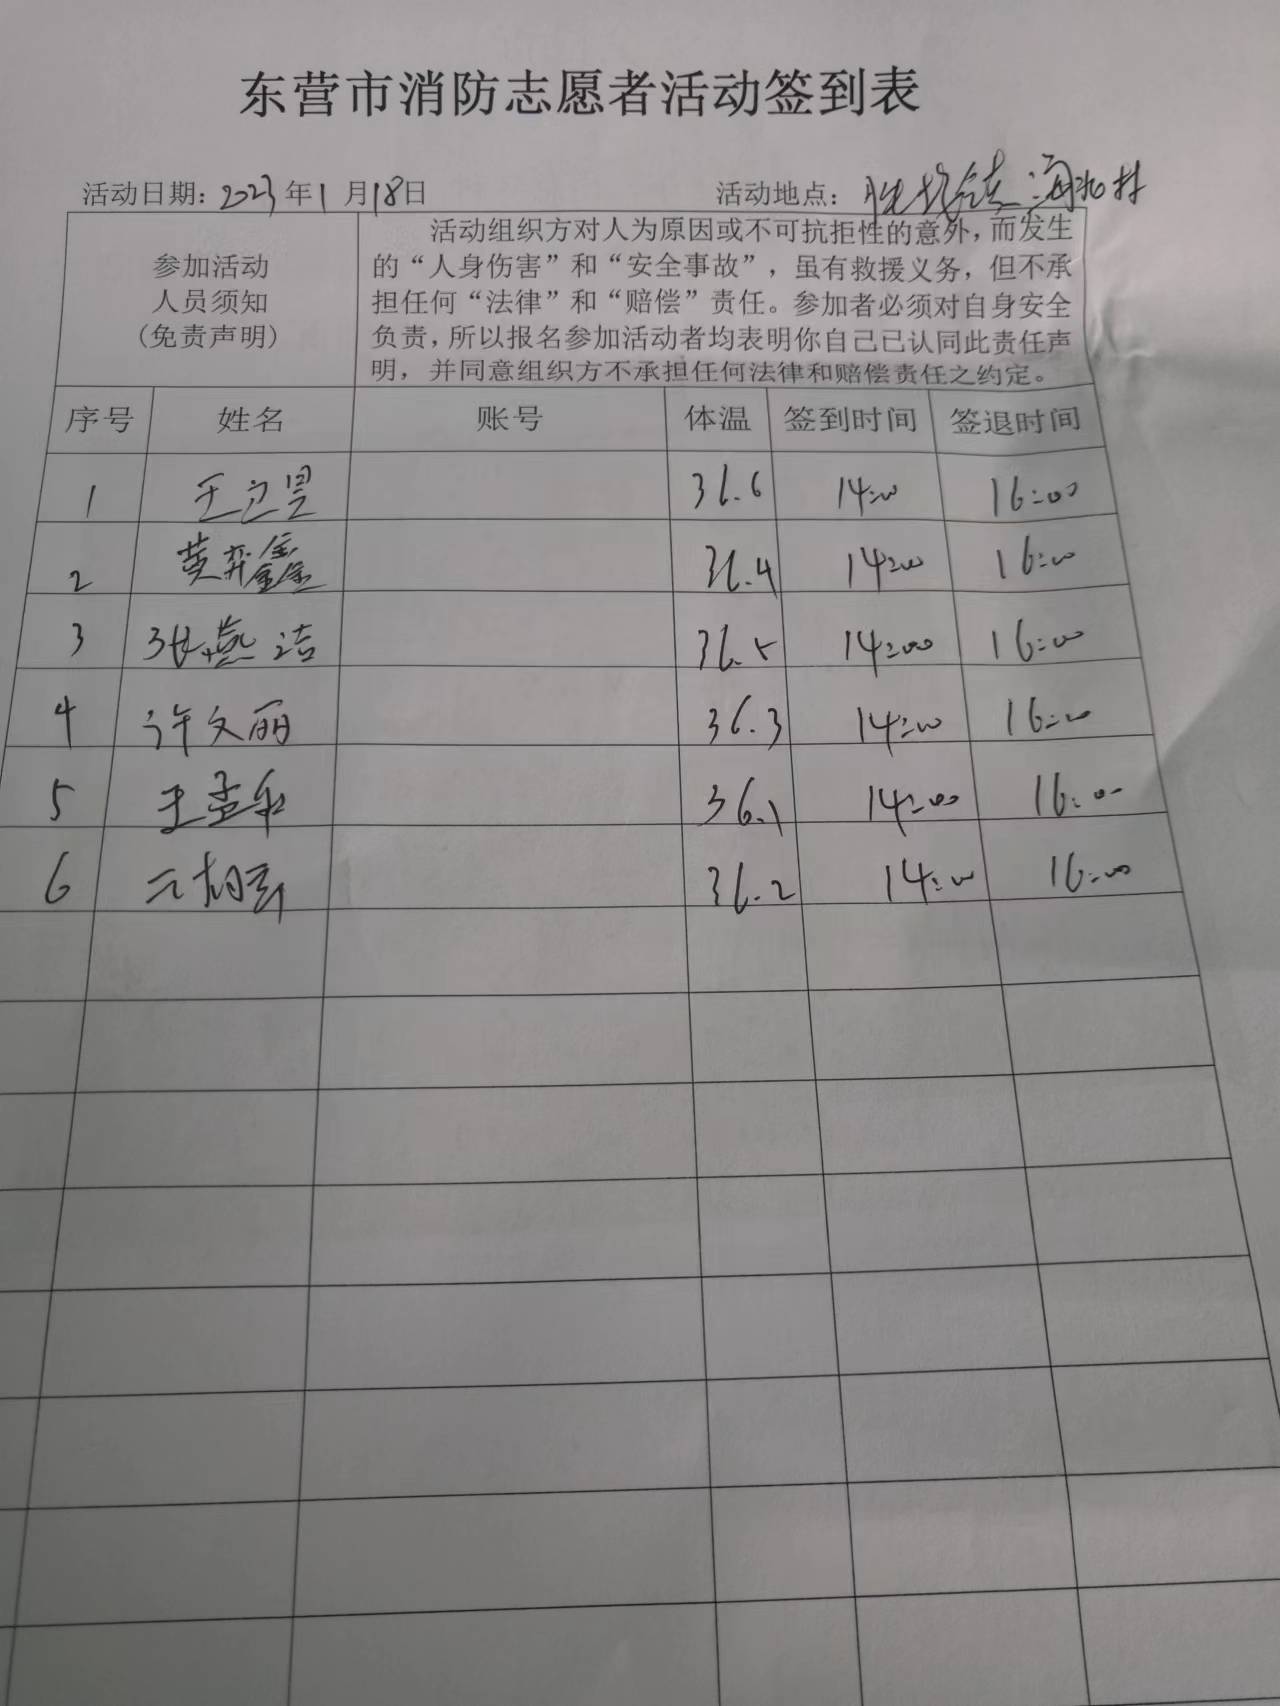 东营市消防志愿者活动签到表
活动日期：2023年1月18日 活动地点：胜坨镇海北村
参加活动
人员须知
(免责声明)
活动组织方对人为原因或不可抗拒性的意外，而发生
的“人身伤害”和“安全事故”，虽有救援义务，但不承
担任何“法律”和“赔偿”责任。参加者必须对自身安全
负责，所以报名参加活动者均表明你自己已认同此责任声
明，并同意组织方不承担任何法律和赔偿责任之约定。
序号 姓名 账号 体温 签到时间 签退时间
1 王 36.6 14:00 16:00
2 黄弈鑫 36.4 14:00 16:00
3 张燕洁 36.5 14:00 16:00
4 许文丽 36.3 14:00 16:00
5 王孟 36.1 14:00 16:00
6 36.2 14:00 16:00